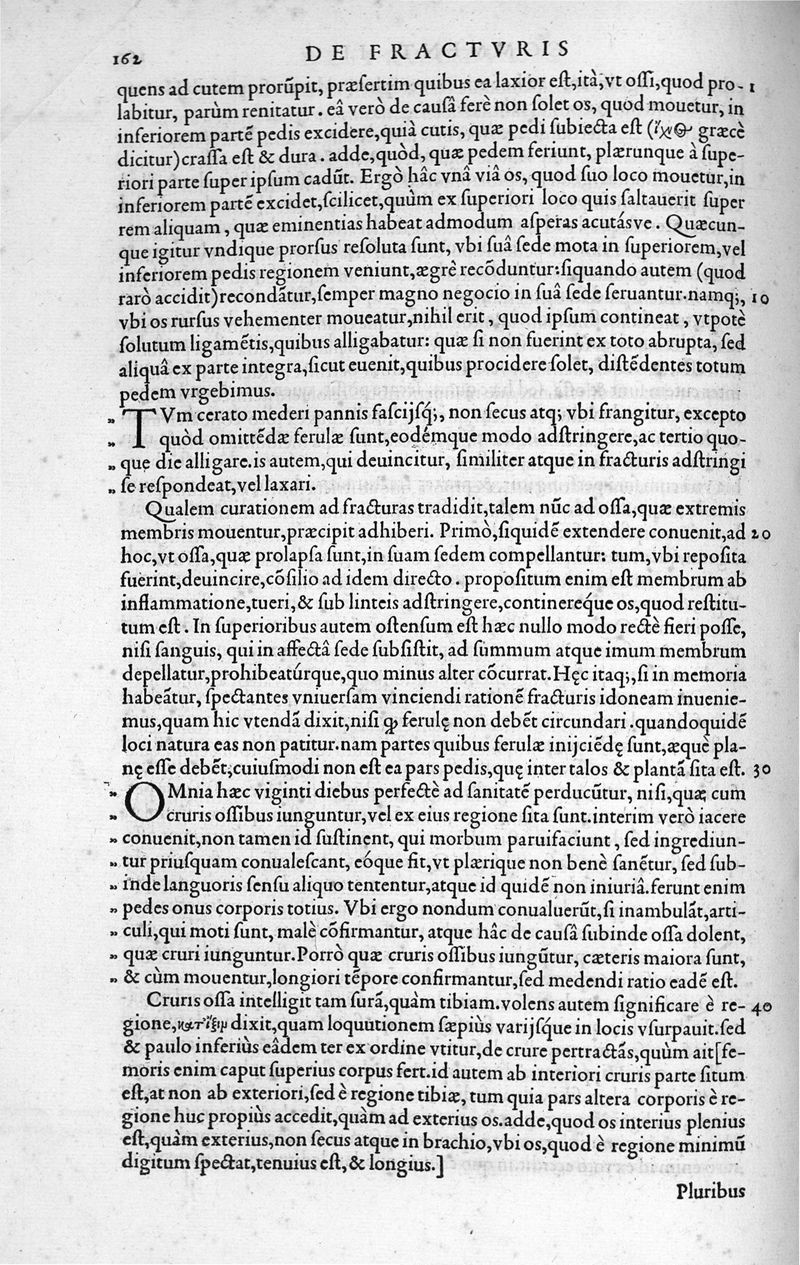 162 DE FRACTVRIS
quens ad cutem prorũpit, præſertim quibus ea laxior eſt, ità, vt oſſi, quod pro- 1
labitur, parùm renitatur. eâ verò de cauſâ ferè non ſolet os, quod mouetur, in
inferiorem partẽ pedis excidere, quià cutis, quæ pedi ſubiecta eſt ( græcè
dicitur) craſſa eſt & dura. adde, quòd, quæ pedem feriunt, plærunque à ſupe-
riori parte ſuper ipſum cadũt. Ergò hâc vnâ viâ os, quod ſuo loco mouetur, in
inferiorem partẽ excidet, ſcilicet, quùm ex ſuperiori loco quis ſaltauerit ſuper
rem aliquam, quæ eminentias habeat admodum aſperas acutásve. Quæcun-
que igitur vndique prorſus reſoluta ſunt, vbi ſuâ ſede mota in ſuperiorem, vel
inferiorem pedis regionem veniunt, ægrè recõduntur: ſiquando autem (quod
rarò accidit) recondãtur, ſemper magno negocio in ſuâ ſede ſeruantur. namq;, 10
vbi os rurſus vehementer moueatur, nihil erit, quod ipſum contineat, vtpotè
ſolutum ligamẽtis, quibus alligabatur: quæ ſi non fuerint ex toto abrupta, ſed
aliquâ ex parte integra, ſicut euenit, quibus procidere ſolet, diſtẽdentes totum
pedem vrgebimus.
„ TVm cerato mederi pannis faſcijſq́;, non ſecus atq; vbi frangitur, excepto
„ quòd omittẽdæ ferulæ ſunt, eodémque modo adſtringere, ac tertio quo-
„ que die alligare. is autem, qui deuincitur, ſimiliter atque in fracturis adſtringi
„ ſe reſpondeat, vel laxari.
Qualem curationem ad fracturas tradidit, talem nũc ad oſſa, quæ extremis
membris mouentur, præcipit adhiberi. Primò, ſiquidẽ extendere conuenit, ad 20
hoc, vt oſſa, quæ prolapſa ſunt, in ſuam ſedem compellantur: tum, vbi repoſita
fuerint, deuincire, cõſilio ad idem directo. propoſitum enim eſt membrum ab
inflammatione, tueri, & ſub linteis adſtringere, continereq́ue os, quod reſtitu-
tum eſt. In ſuperioribus autem oſtenſum eſt hæc nullo modo rectè fieri poſſe,
niſi ſanguis, qui in affectâ ſede ſubſiſtit, ad ſummum atque imum membrum
depellatur, prohibeatúrque, quo minus alter cõcurrat. Hęc itaq;, ſi in memoria
habeãtur, ſpectantes vniuerſam vinciendi rationẽ fracturis idoneam inuenie-
mus, quam hic vtendã dixit, niſi ꝙ ferulę non debẽt circundari. quandoquidẽ
loci natura eas non patitur. nam partes quibus ferulæ inijciẽdę ſunt, æquè pla-
nę eſſe debẽt; cuiuſmodi non eſt ea pars pedis, quę inter talos & plantã ſita eſt. 30
„ OMnia hæc viginti diebus perfectè ad ſanitatẽ perducũtur, niſi, quæ cum
„ cruris oſſibus iunguntur, vel ex eius regione ſita ſunt. interim verò iacere
„ conuenit, non tamen id ſuſtinent, qui morbum paruifaciunt, ſed ingrediun-
„ tur priuſquam conualeſcant, eóque fit, vt plærique non benè ſanẽtur, ſed ſub-
„ inde languoris ſenſu aliquo tententur, atque id quidẽ non iniuriâ. ferunt enim
„ pedes onus corporis totius. Vbi ergo nondum conualuerũt, ſi inambulãt, arti-
„ culi, qui moti ſunt, malè cõfirmantur, atque hâc de cauſâ ſubinde oſſa dolent,
„ quæ cruri iunguntur. Porrò quæ cruris oſſibus iungũtur, cæteris maiora ſunt,
„ & cùm mouentur, longiori tẽpore confirmantur, ſed medendi ratio eadẽ eſt.
Cruris oſſa intelligit tam ſurã, quàm tibiam. volens autem ſignificare è re- 40
gione, dixit, quam loquutionem ſæpiùs varijſq́ue in locis vſurpauit. ſed
& paulo inferiùs eâdem ter ex ordine vtitur, de crure pertractãs, quùm ait [fe-
moris enim caput ſuperius corpus fert. id autem ab interiori cruris parte ſitum
eſt, at non ab exteriori, ſed è regione tibiæ, tum quia pars altera corporis è re-
gione huc propiùs accedit, quàm ad exterius os. adde, quod os interius plenius
eſt, quàm exterius, non ſecus atque in brachio, vbi os, quod è regione minimũ
digitum ſpectat, tenuius eſt, & longius.]
Pluribus